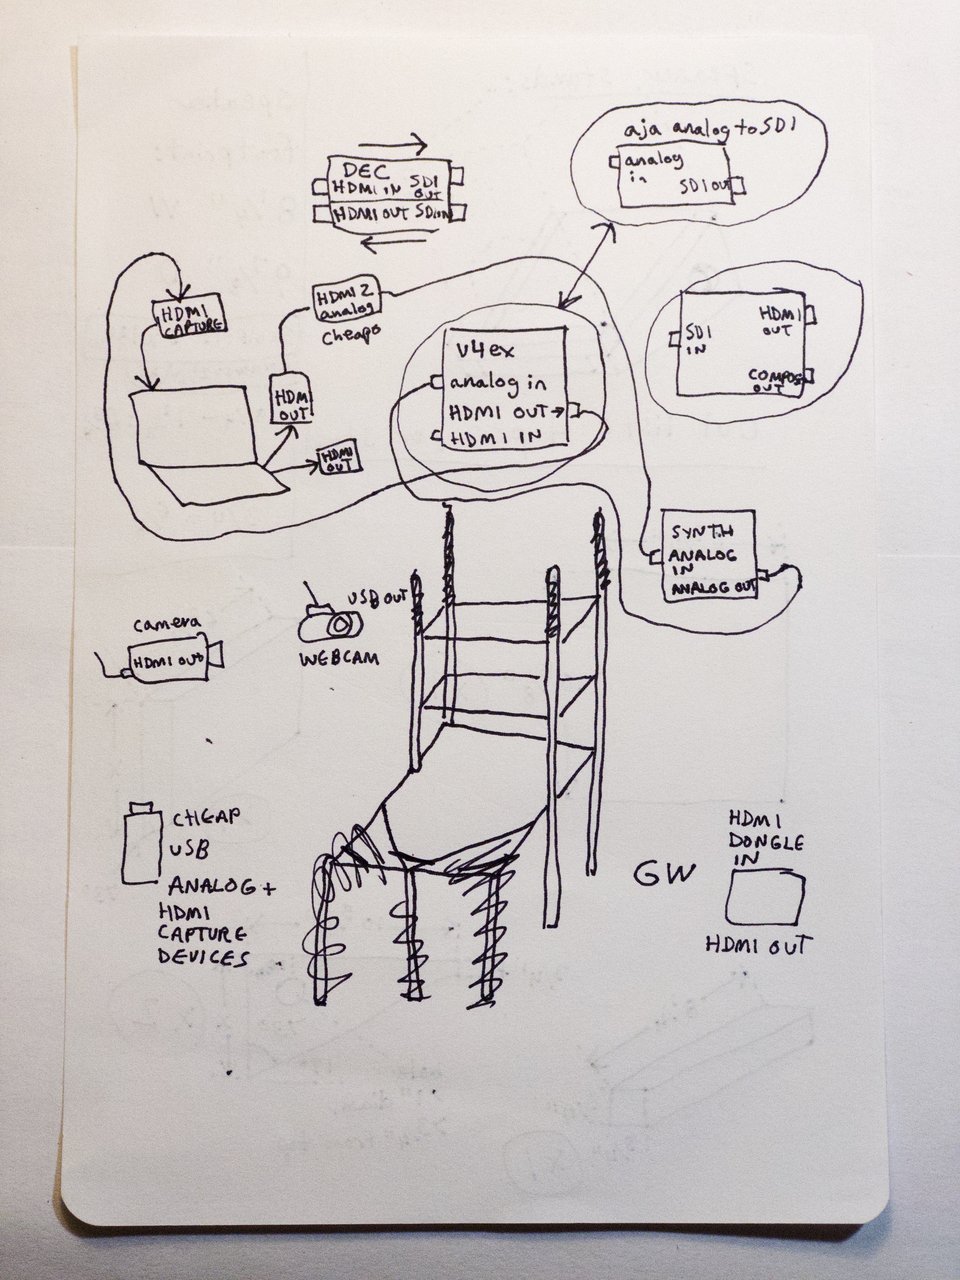 aja analog to SDI
analog
in
SDI OUT
DEC
HDMI IN SDI
OUT
HDMI OUT SDI IN
HDMI 2
analog
cheapo
HDMI
CAPTURE
SDI
IN
HDMI
OUT
COMPOS
OUT
V4ex
analog in
HDMI OUT
HDMI IN
HDMI
OUT
HDMI
OUT
SYNTH
ANALOG
IN
ANALOG OUT
USB OUT
WEBCAM
camera
HDMI OUT
CHEAP
USB
ANALOG +
HDMI
CAPTURE
DEVICES
GW
HDMI
DONGLE
IN
HDMI OUT